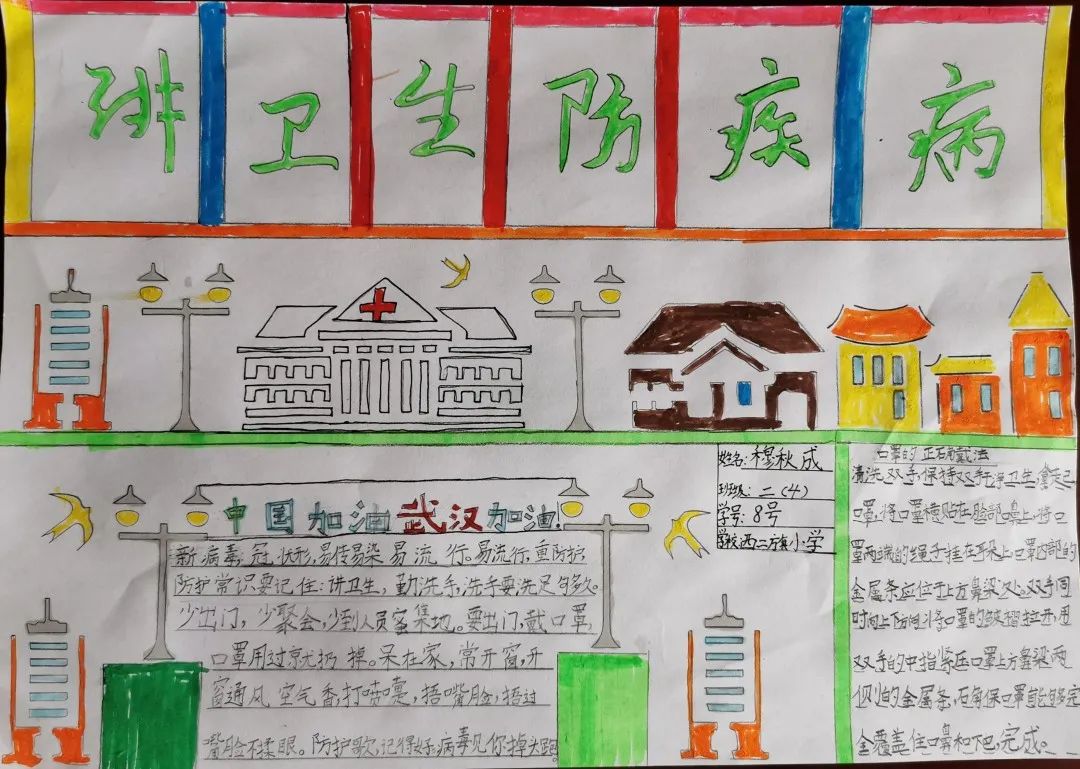 讲卫生防疾病
中国加油武汉加油!
新病毒,冠状形,易传易染易流行。易流行,重防护,
防护常识要记住:讲卫生,勤洗手,洗手要洗足够久。
少出门,少聚会,少到人员密集地。要出门,戴口罩,
口罩用过就扔掉。呆在家,常开窗,开
窗通风空气香,打喷嚏,捂嘴脸,捂过
嘴脸不揉眼。防护歌,记得好,病毒见你掉头跑
姓名:穆秋成
班级:二(4)
学号:8号
学校:西二方镇小学
口罩的正确戴法
清洗双手,保持双手干净卫生,拿起
口罩,将口罩横贴在脸部鼻上,将口
罩两端的绳子挂在耳朵上,口罩内部的
金属条应位于上方鼻梁处。双手同
时向上下方向将口罩的皱褶拉开,用
双手的中指紧压口罩上方鼻梁两
侧的金属条,确保口罩能够完
全覆盖住口鼻和下巴,完成。